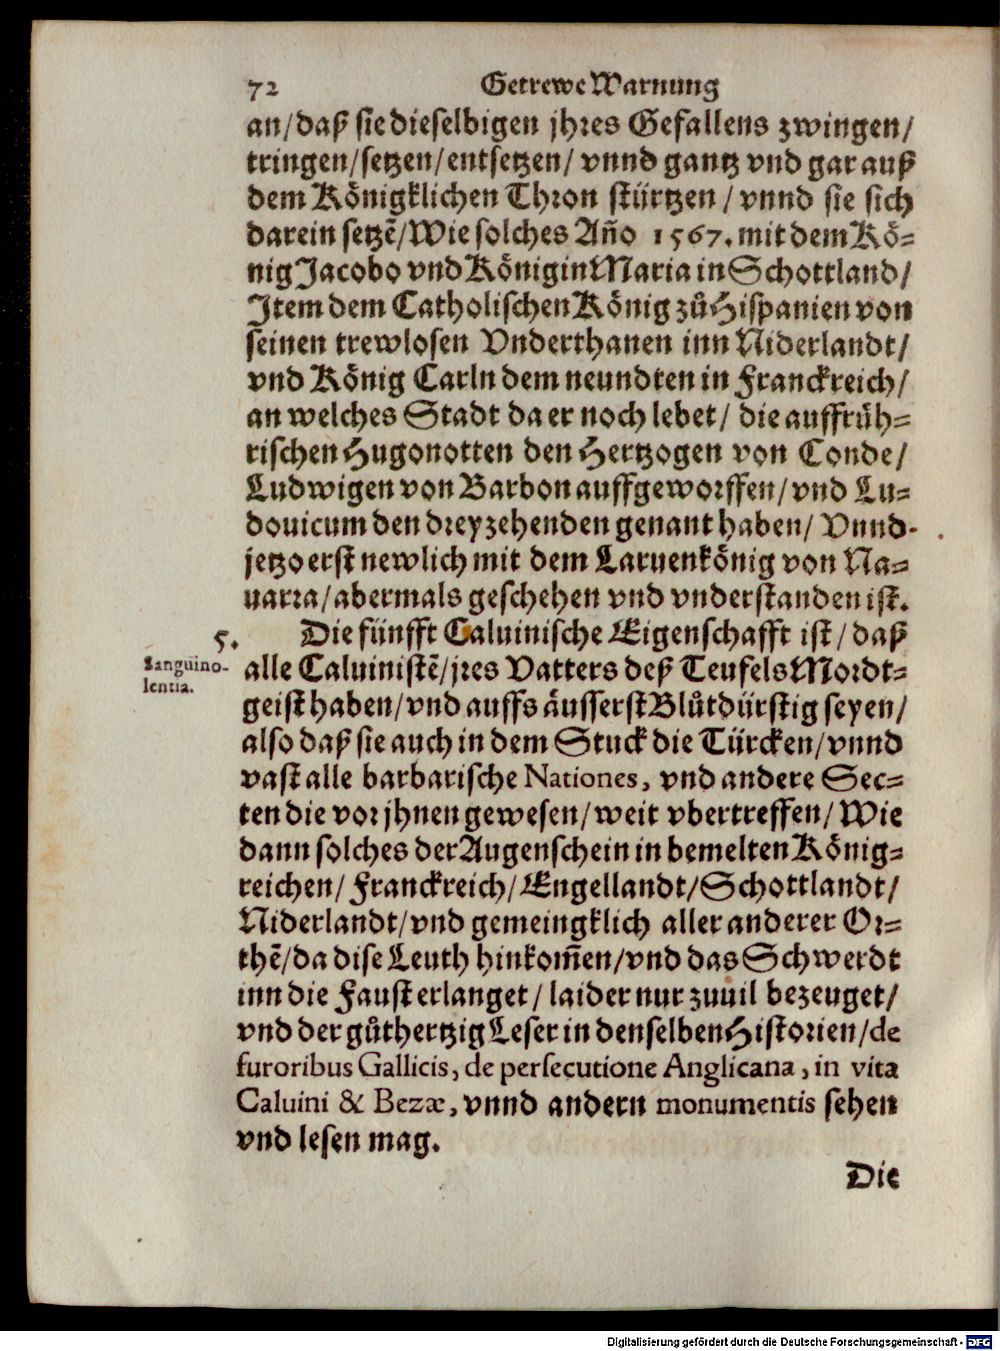 72 Getrewe Warnung
an/daß sie dieselbigen jhres Gefallens zwingen/
tringen/setzen/entsetzen/ vnnd gantz vnd gar auß
dem Königklichen Thron stürtzen / vnnd sie sich
darein setzẽ/Wie solches Año 1567. mit dem Kö-
nig Jacobo vnd Königin Maria in Schottland/
Item dem Catholischen König zů Hispanien von
seinen trewlosen Vnderthanen inn Niderlandt/
vnd König Carln dem neundten in Franckreich/
an welches Stadt da er noch lebet/ die auffrüh-
rischen Hugonotten den Hertzogen von Conde/
Ludwigen von Barbon auffgeworffen/vnd Lu-
douicum den dreyzehenden genant haben/ Vnnd
jetzo erst newlich mit dem Laruenkönig von Na-
uarra/abermals geschehen vnd vnderstanden ist.
5. Die fünfft Caluinische Eigenschafft ist/daß
Sanguino-
lentia.
alle Caluinistẽ/jres Vatters deß Teufels Mordt-
geist haben/vnd auffs äusserst Blůtdürstig seyen/
also daß sie auch in dem Stuck die Türcken/vnnd
vast alle barbarische Nationes, vnd andere Sec-
ten die vor jhnen gewesen/weit vbertreffen/Wie
dann solches der Augenschein in bemelten König-
reichen/Franckreich/Engellandt/Schottlandt/
Niderlandt/vnd gemeingklich aller anderer Or-
thẽ/da dise Leuth hinkom̃en/vnd das Schwerdt
inn die Faust erlanget/laider nur zuuil bezeuget/
vnd der gůthertzig Leser in denselben Historien/de
furoribus Gallicis, de persecutione Anglicana, in vita
Caluini & Bezæ, vnnd andern monumentis sehen
vnd lesen mag.
Die
Digitalisierung gefördert durch die Deutsche Forschungsgemeinschaft - DFG